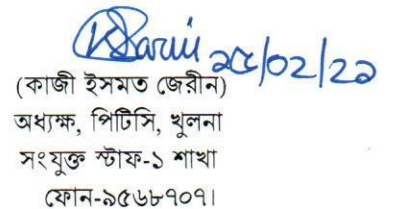 ২৫/০২/২১
(কাজী ইসমত জেরীন)
অধ্যক্ষ, পিটিসি, খুলনা
সংযুক্ত স্টাফ-১ শাখা
ফোন-৯৫৬৮৭০৭।